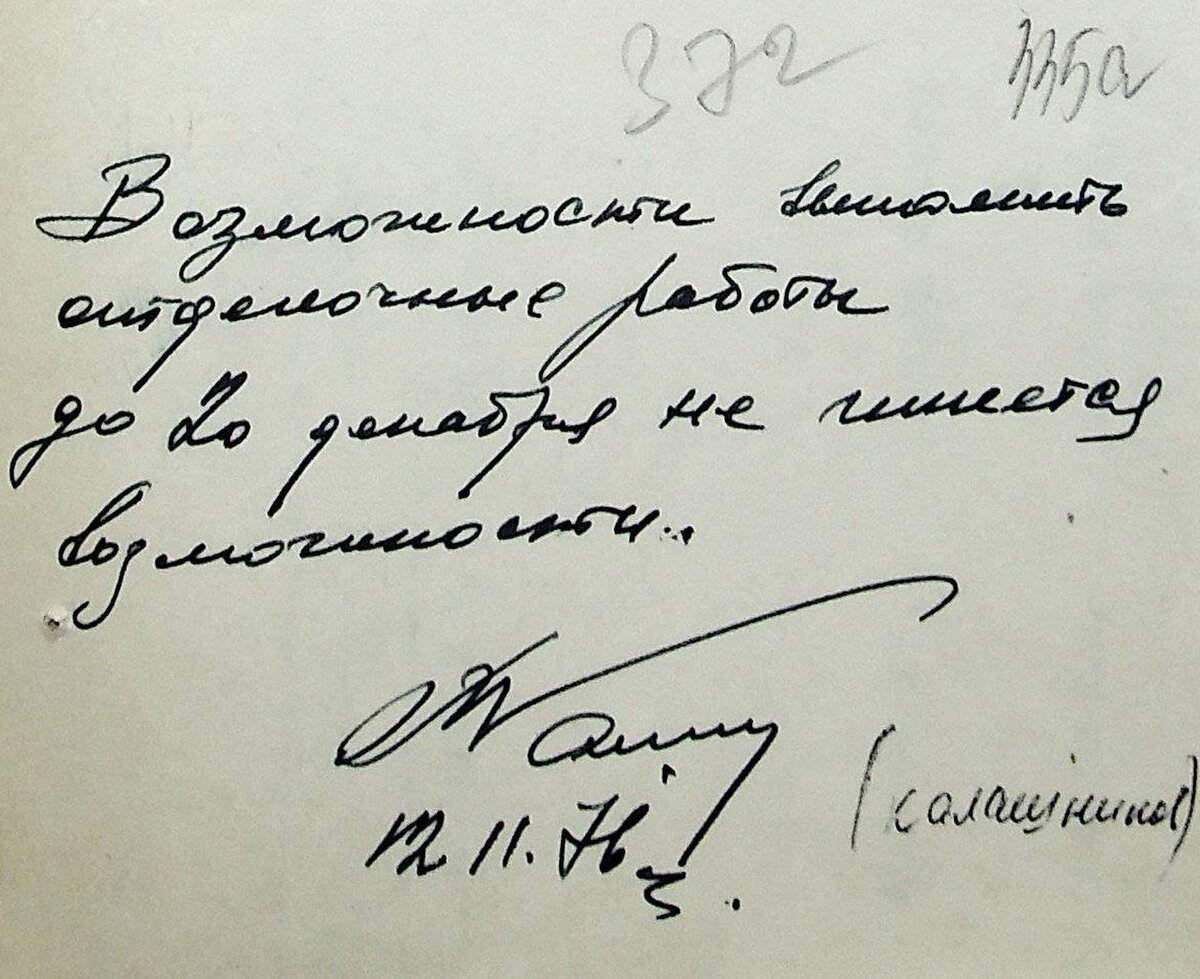 372 335а
Возможности выполнить
отделочные работы
до 20 декабря не имеется
возможности..
12.11.76 г.
(Калашников)